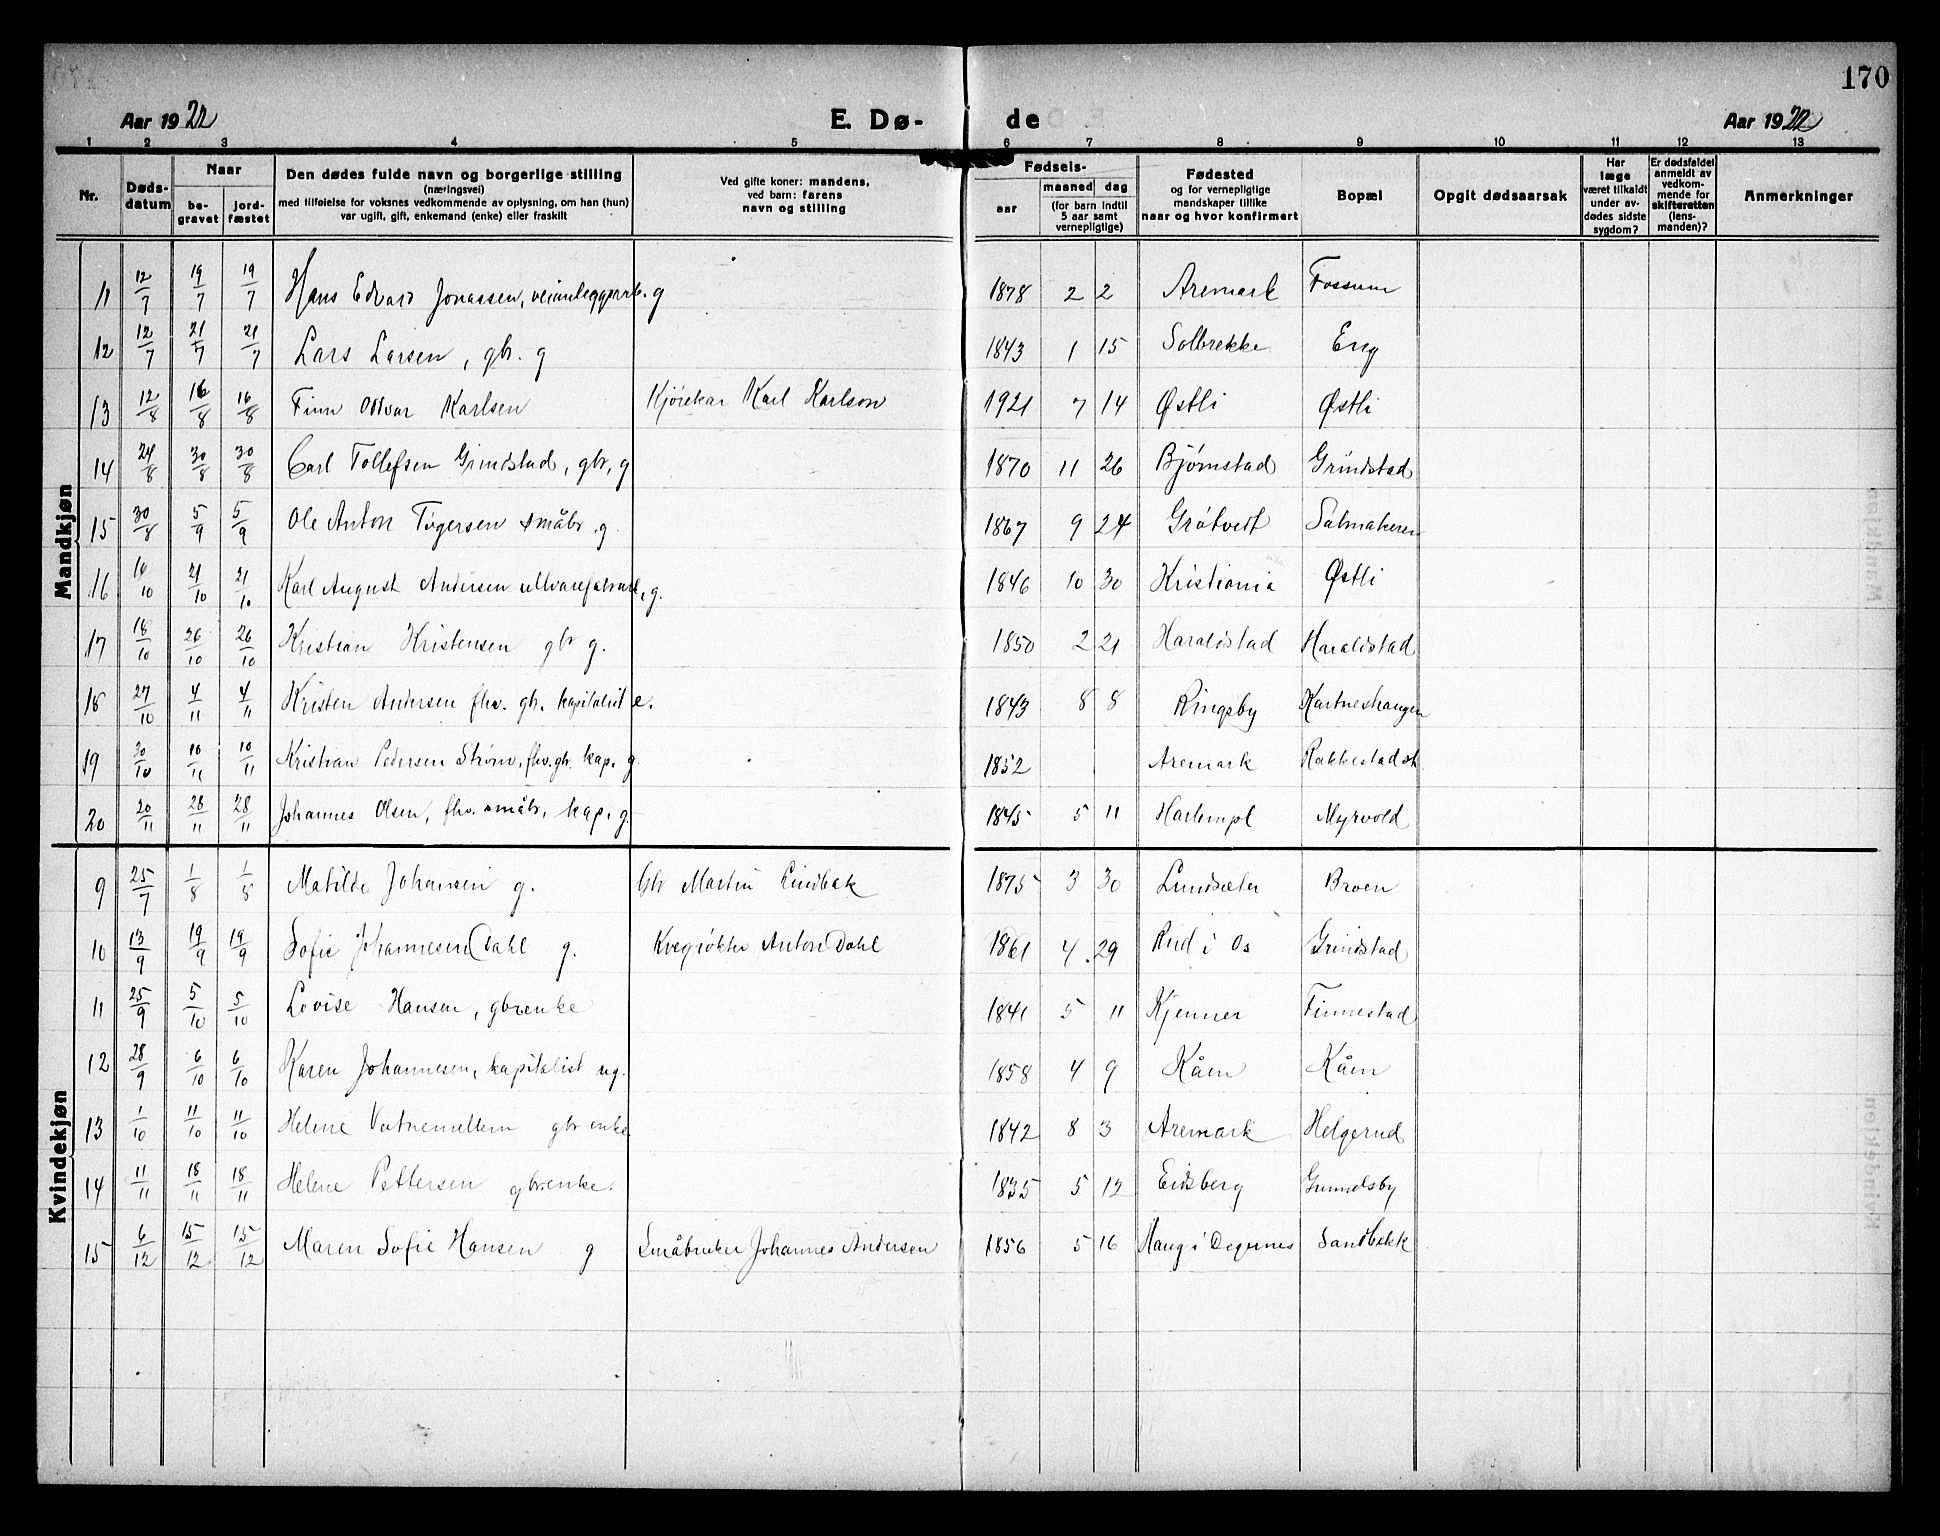 170
Aar 1922 E. Dø- de Aar 1922
1 2 3 4 5 6 7 8 9 10 11 12 13
Nr. Døds-datum Naar begravet jordfæstet Den dødes fulde navn og borgerlige stilling (næringsvei) med tilføielse for voksnes vedkommende av oplysning, om han (hun) var ugift, gift, enkemand (enke) eller fraskilt Ved gifte koner: mandens, ved barn: farens navn og stilling Fødsels- aar maaned dag (for barn indtil 5 aar samt vernepligtige) Fødested og for vernepligtige mandskaper tillike naar og hvor konfirmert Bopæl Opgit dødsaarsak Har læge været tilkaldt under avdødes sidste sygdom? Er dødsfaldet anmeldt av vedkommende for skifteretten (lensmanden)? Anmerkninger
Mandkjøn
11 12/7 19/7 19/7 Hans Edvard Jonassen, g 1878 2 2 Aremark Fossum
12 12/7 21/7 21/7 Lars Larsen, gbr. g 1843 1 15 Solbrekke Eng
13 12/8 16/8 16/8 Finn Oddvar Karlsen Kjörekar Karl Karlson 1921 7 14 Østli Østli
14 24/8 30/8 30/8 Carl Tollefsen Grindstad, gbr, g 1870 11 26 Bjørnstad Grindstad
15 30/8 5/9 5/9 Ole Anton Tigersen småbr. g. 1867 9 24 Grøtvedt Salmakeren
16 /10 21/10 21/10 Karl August Andersen g. 1846 10 30 Kristiania Østli
17 18/10 26/10 26/10 Kristian Kristensen gbr g. 1850 2 21 Haraldstad Haraldstad
18 27/10 4/11 4/11 Kristen Andersen fhv. gbr. kapitalist e. 1843 8 8 Ringsby Kartneshaugen
19 30/10 10/11 10/11 Kristian Pedersen Strøm, fhv. gbr. kap. g. 1852 Aremark Rakkestad st.
20 20/11 28/11 28/11 Johannes Olsen, fhv. småbr, kap. g. 1845 5 11 Harlempl Myrvold
Kvindekjøn
9 25/7 1/8 1/8 Matilde Johansen g. Gbr Martin Lindbæk 1875 3 30 Lundsæter Broen
10 13/9 19/9 19/9 Sofie Johannesen Dahl g. Kvegrøkter Anton Dahl 1861 4 29 Rud i Os Grindstad
11 25/9 5/10 5/10 Lovise Hansen, gbrenke 1841 5 11 Kjenner Finnestad
12 28/9 6/10 6/10 Karen Johannesen, kapitalist ug. 1858 4 9 Kåen Kåen
13 1/10 11/10 11/10 Helene Vatnemellem gbr enke 1842 8 3 Aremark Helgerud
14 11/11 18/11 18/11 Helene Pettersen gbrenke. 1835 5 12 Eidsberg Gunnelsby
15 6/12 15/12 15/12 Maren Sofie Hansen g Småbruker Johannes Andersen 1856 5 16 Haug i Degernes Sandbækk